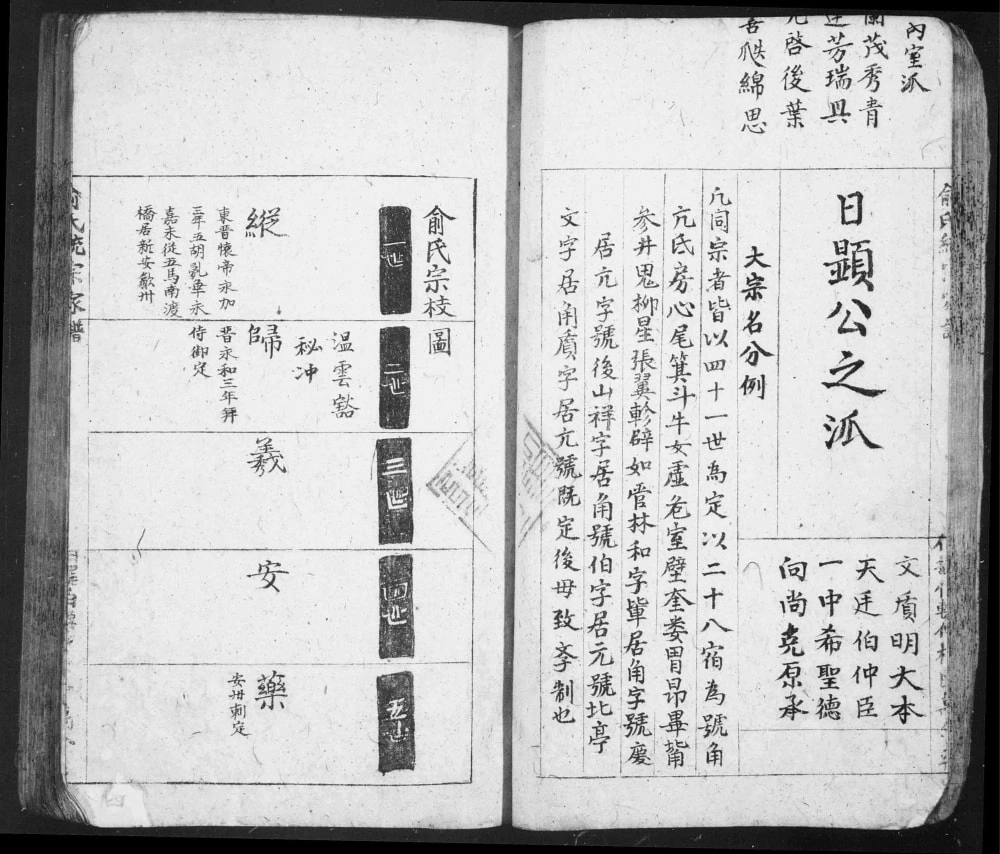 內室派
蘭茂秀青
芳瑞具
啓後葉
瓞綿思
日顯公之派
文墳明大本
天廷伯仲臣
一中希聖德
向尚堯原承
大宗名分例
凡同宗者皆以四十一世為定以二十八宿為號角
亢氐房心尾箕斗牛女虛危室壁奎娄胃昴畢觜
参井鬼柳星張翼軫辟如管林和字軰居角字號慶
居亢字號後山祥字居角號伯字居元號北亭
文字居角质字居亢號既定後毋致紊制也
俞氏宗枝圖
一世
縱
東晋懷帝永加
三年五胡乱華永
嘉末從五馬南渡
橋居新安歙州
二世
溫雲谿
秘冲
歸
晋永和三年拜
侍御定
三世
羲
四世
安
五世
藥
安州刺定
俞氏統宗家譜